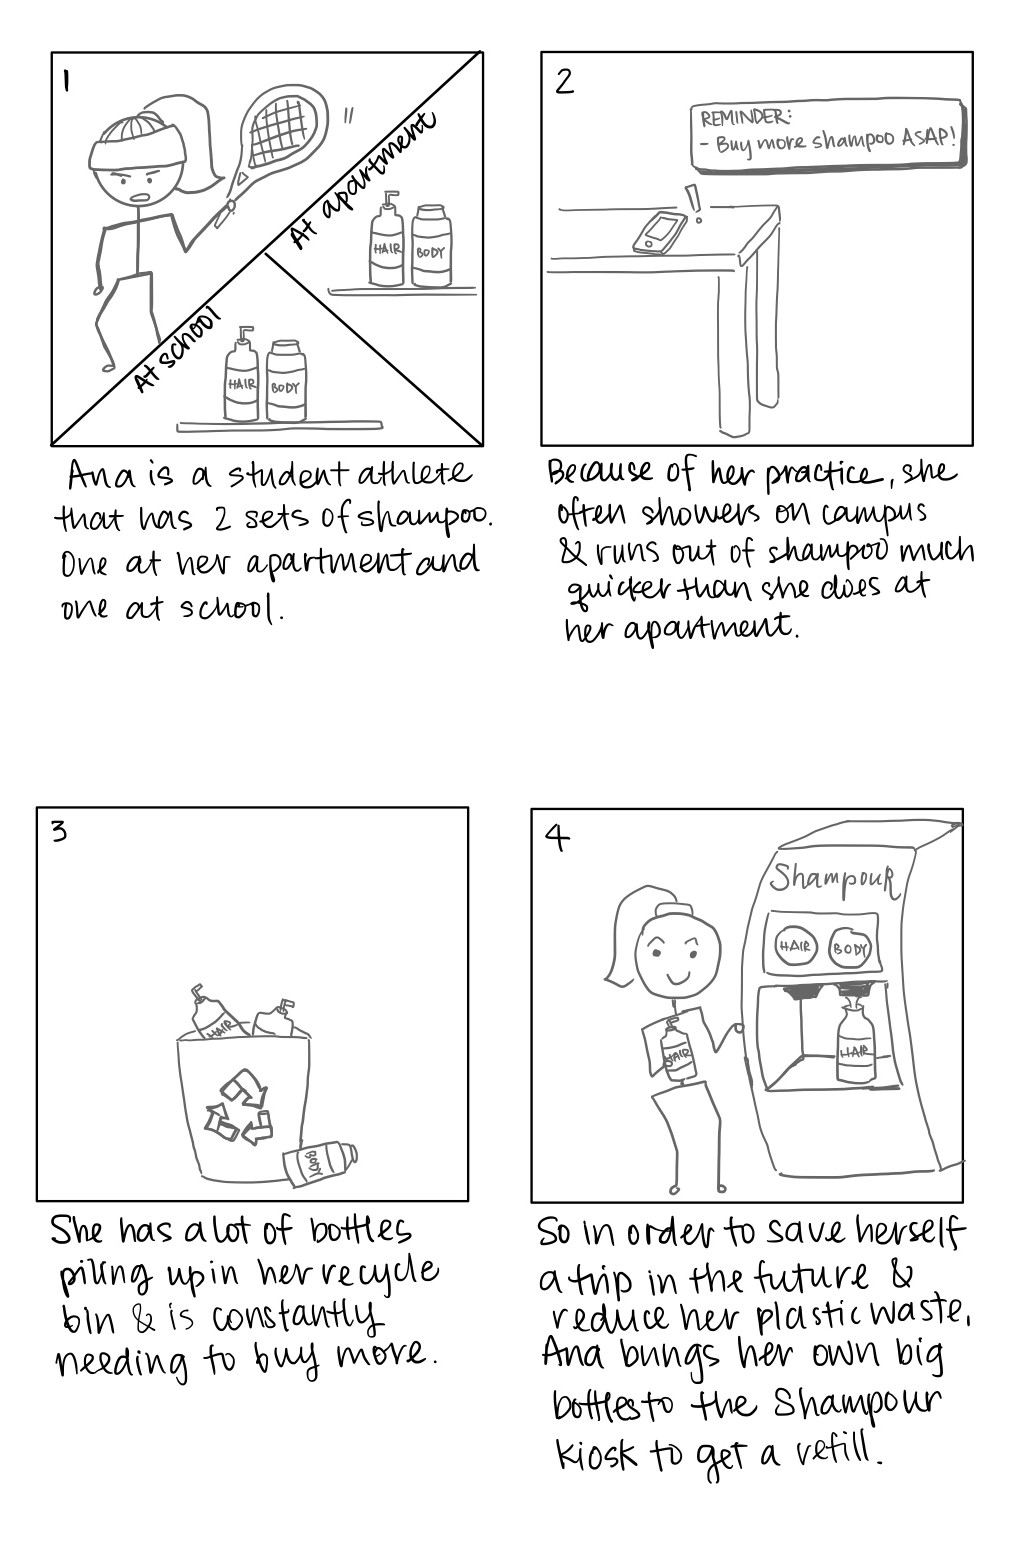 1
At apartment
HAIR
BODY
At school
HAIR
BODY
Ana is a student athlete
that has 2 sets of shampoo.
One at her apartment and
one at school.
2
REMINDER:
- Buy more shampoo ASAP!
Because of her practice, she
often showers on campus
& runs out of shampoo much
quicker than she does at
her apartment.
3
HAIR
BODY
She has a lot of bottles
piling up in her recycle
bin & is constantly
needing to buy more.
4
Shampour
HAIR
BODY
HAIR
HAIR
So in order to save herself
a trip in the future &
reduce her plastic waste,
Ana brings her own big
bottles to the Shampour
kiosk to get a refill.